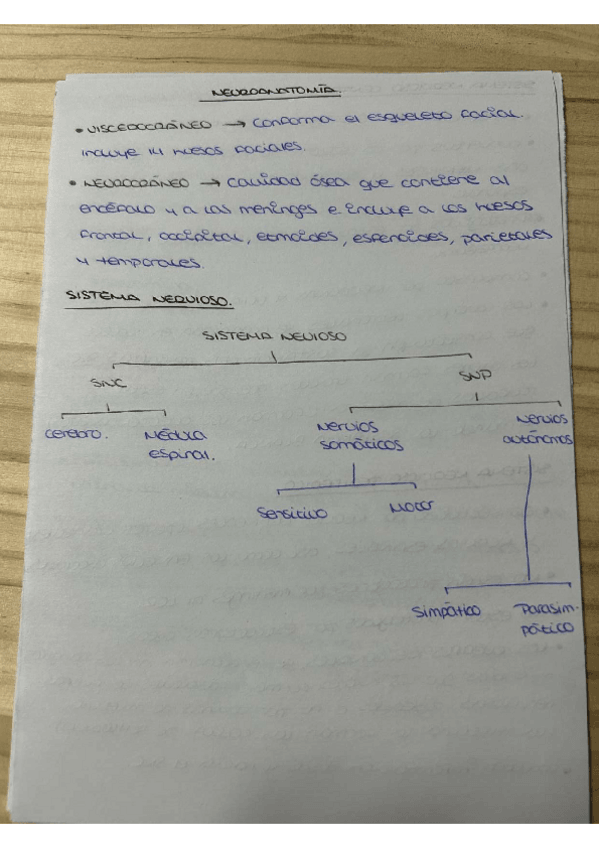 NEUROANATOMÍA.
• VISCEROCRÁNEO → Conforma el esqueleto facial.
Incluye 14 huesos faciales.
• NEUROCRÁNEO → Cavidad ósea que contiene al
encéfalo y a las meninges e incluye a los huesos
frontal, occipital, etmoides, esfenoides, parietales
y temporales.
SISTEMA NERVIOSO.
SISTEMA NEVIOSO
SNC SNP
Cerebro. Médula espinal.
Nervios somáticos
Nervios autónomos
Sensitivo Motor
Simpático Parasim-
pático